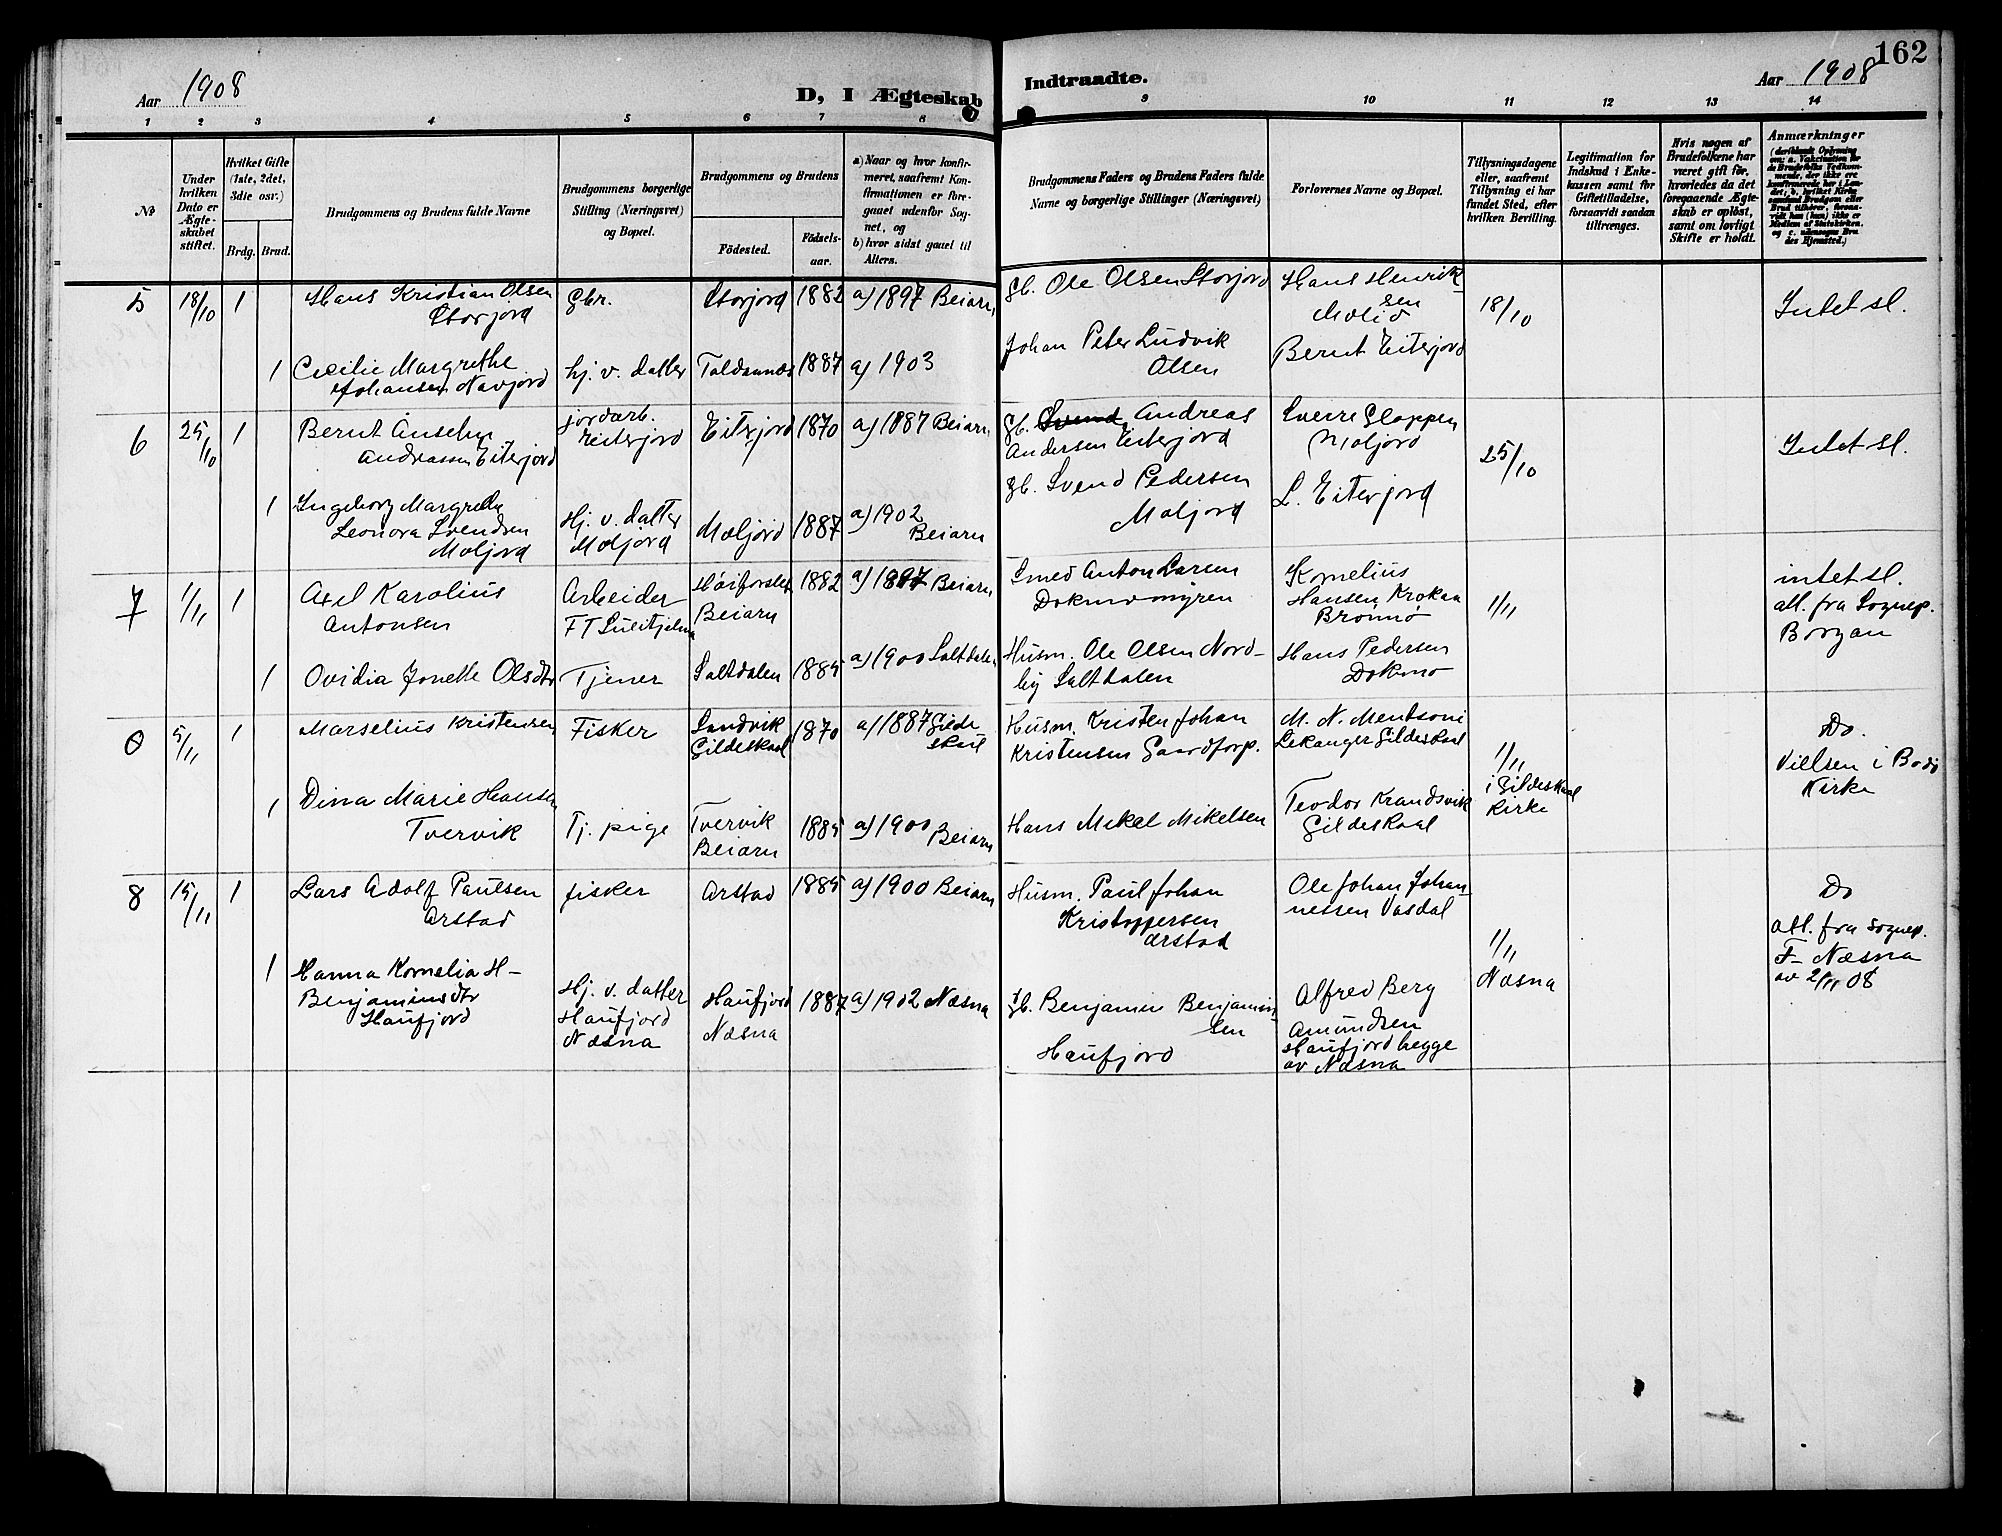 162
Aar 1908
D, I Ægteskab
Indtraadte.
Aar 1908
1 2 3 4 5 6 7 8 9 10 11 12 13 14
No
Under hvilken Dato er Ægteskabet stiftet.
Hvilket Gifte (1ste, 2det, 3die osv.)
Brdg. Brud.
Brudgommens og Brudens fulde Navne
Brudgommens borgerlige Stilling (Næringsvei) og Bopæl.
Brudgommens og Brudens
Födested.
Födsels-aar.
a) Naar og hvor konfirmeret, saafremt Konfirmationen er foregaaet udenfor Sognet, og
b) hvor sidst gaaet til Alters.
Brudgommens Faders og Brudens Faders fulde Navne og borgerlige Stillinger (Næringsvei)
Forlovernes Navne og Bopæl.
Tillysningsdagene eller, saafremt Tillysning ei har fundet Sted, efter hvilken Bevilling.
Legitimation for Indskud i Enkekassen samt for Giftetilladelse, forsaavidt saadan tiltrænges.
Hvis nogen af Brudefolkene har været gift før, hvorledes da det foregaaende Ægteskab er oplöst, samt om lovligt Skifte er holdt.
Anmærkninger
5 18/10 1 Hans Kristian Olsen
Storjord
Gbr. Storjord 1882 a) 1897 Beiarn
Gb. Ole Olsen Storjord
Hans Henrik-
sen
Molid
18/10
Intet sl.
1 Cecilie Margrethe
Johansen Navjord
hj. v. datter
1887 a) 1903
Johan Peter Ludvik
Olsen
Bernt Eiterjord
6 25/10 1 Bernt Anselm
Andreassen Eiterjord
jordarb.
Eiterjord
Eiterjord 1870 a) 1887 Beiarn
Gb. Svend Andreas
Andersen Eiterjord
Sverre Gloppen
Moljord
25/10
Intet sl.
1 Ingeborg Margrethe
Leonora Svendsen
Moljord
Hj. v. datter
Moljord
Moljord 1887 a) 1902
Beiarn
Gb. Svend Pedersen
Moljord
L. Eiterjord
7 1/11 1 Axel Karolius
Antonsen
Arbeider
FT Sulitjelma
Høiforslet
Beiarn
1882 a) 1897 Beiarn
Smed Anton Larsen
Dokmomyren
Kornelius
Hansen Krokaa
Brønnø
1/11
intet sl.
att. fra Sognep.
Borgan
1 Ovidia Jonette Olsdtr
Tjener Saltdalen 1885 a) 1900 Saltdalen
Husm. Ole Olsen Nord-
by Saltdalen
Hans Pedersen
Dokmo
0 5/11 1 Marselius Kristensen
Fisker
Sandvik
Gildeskaal
1870 a) 1887 Gilde-
skaal
Husm. Kristen Johan
Kristensen
M. N.
Lekanger Gildeskaal
1/11
i Gildeskaal
Kirke
Do.
Viet i Bodø
Kirke
1 Dina Marie Hansen
Tvervik
Tj. pige
Tvervik
Beiarn
1885 a) 1900 Beiarn
Hans Mikal Mikelsen
Teodor Krandsvik
Gildeskaal
8 15/11 1 Lars Adolf Paulsen
Arstad
fisker Arstad 1885 a) 1900 Beiarn
Husm. Paul Johan
Kristoffersen
Arstad
Ole Johan Johan-
nessen Vasdal
1/11
Næsna
Do
att. fra sognep.
F. Næsna
av 2/11 08
1 Hanna Kornelia H-
Benjaminsdtr
Haufjord
Hj. v. datter
Haufjord
Næsna
Haufjord
Næsna
1887 a) 1902 Næsna
Gb. Benjamin Benjamin-
sen
Haufjord
Alfred Berg
Amundsen
Haufjord begge
av Næsna